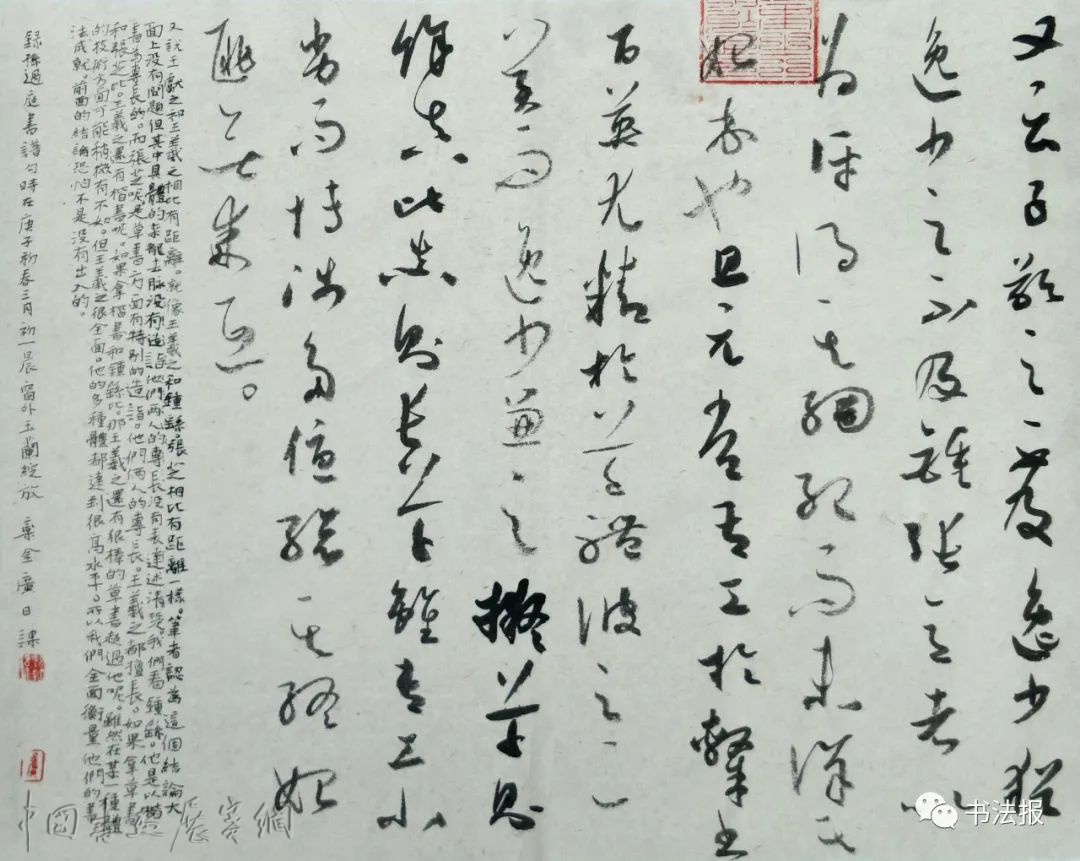 又云子敬之不及逸少猶
逸少之不及鍾張意者以
為評得其綱紀而未詳其
始卒也且元常專工於隸書
百英尤精於草體彼之二
美而逸少兼之擬草則
餘真比真則長草雖專工小
劣而博涉多優揔其終始
匪無乖互。
又說王獻之和王羲之相比有距離。就像王羲之和鍾繇張芝相比有距離一樣。筆者認為這個結論大
面上沒有問題但其中具體的來龍去脉沒有達詣他們兩人的專長沒有表達述清楚。我們看鍾繇。他是以楷
書為專長的。而張芝呢是草書方面有特別的造詣。他們兩人的專長。王羲之都擅長。如果拿草書
和張芝比。王羲之還有楷書呢。如果拿楷書和鍾繇比。那王羲之還有很棒的草書超過他呢。雖然在某一種體
的技術方面可能稍微有不如。但王羲之很全面。他的多種體都達到很高水平。所以我們全面衡量他們的書
法成就。前面的結論恐怕不是沒有出入的。
錄孫過庭書譜句時在庚子初春三月初一晨窗外玉蘭綻放 金廣日課
书法报